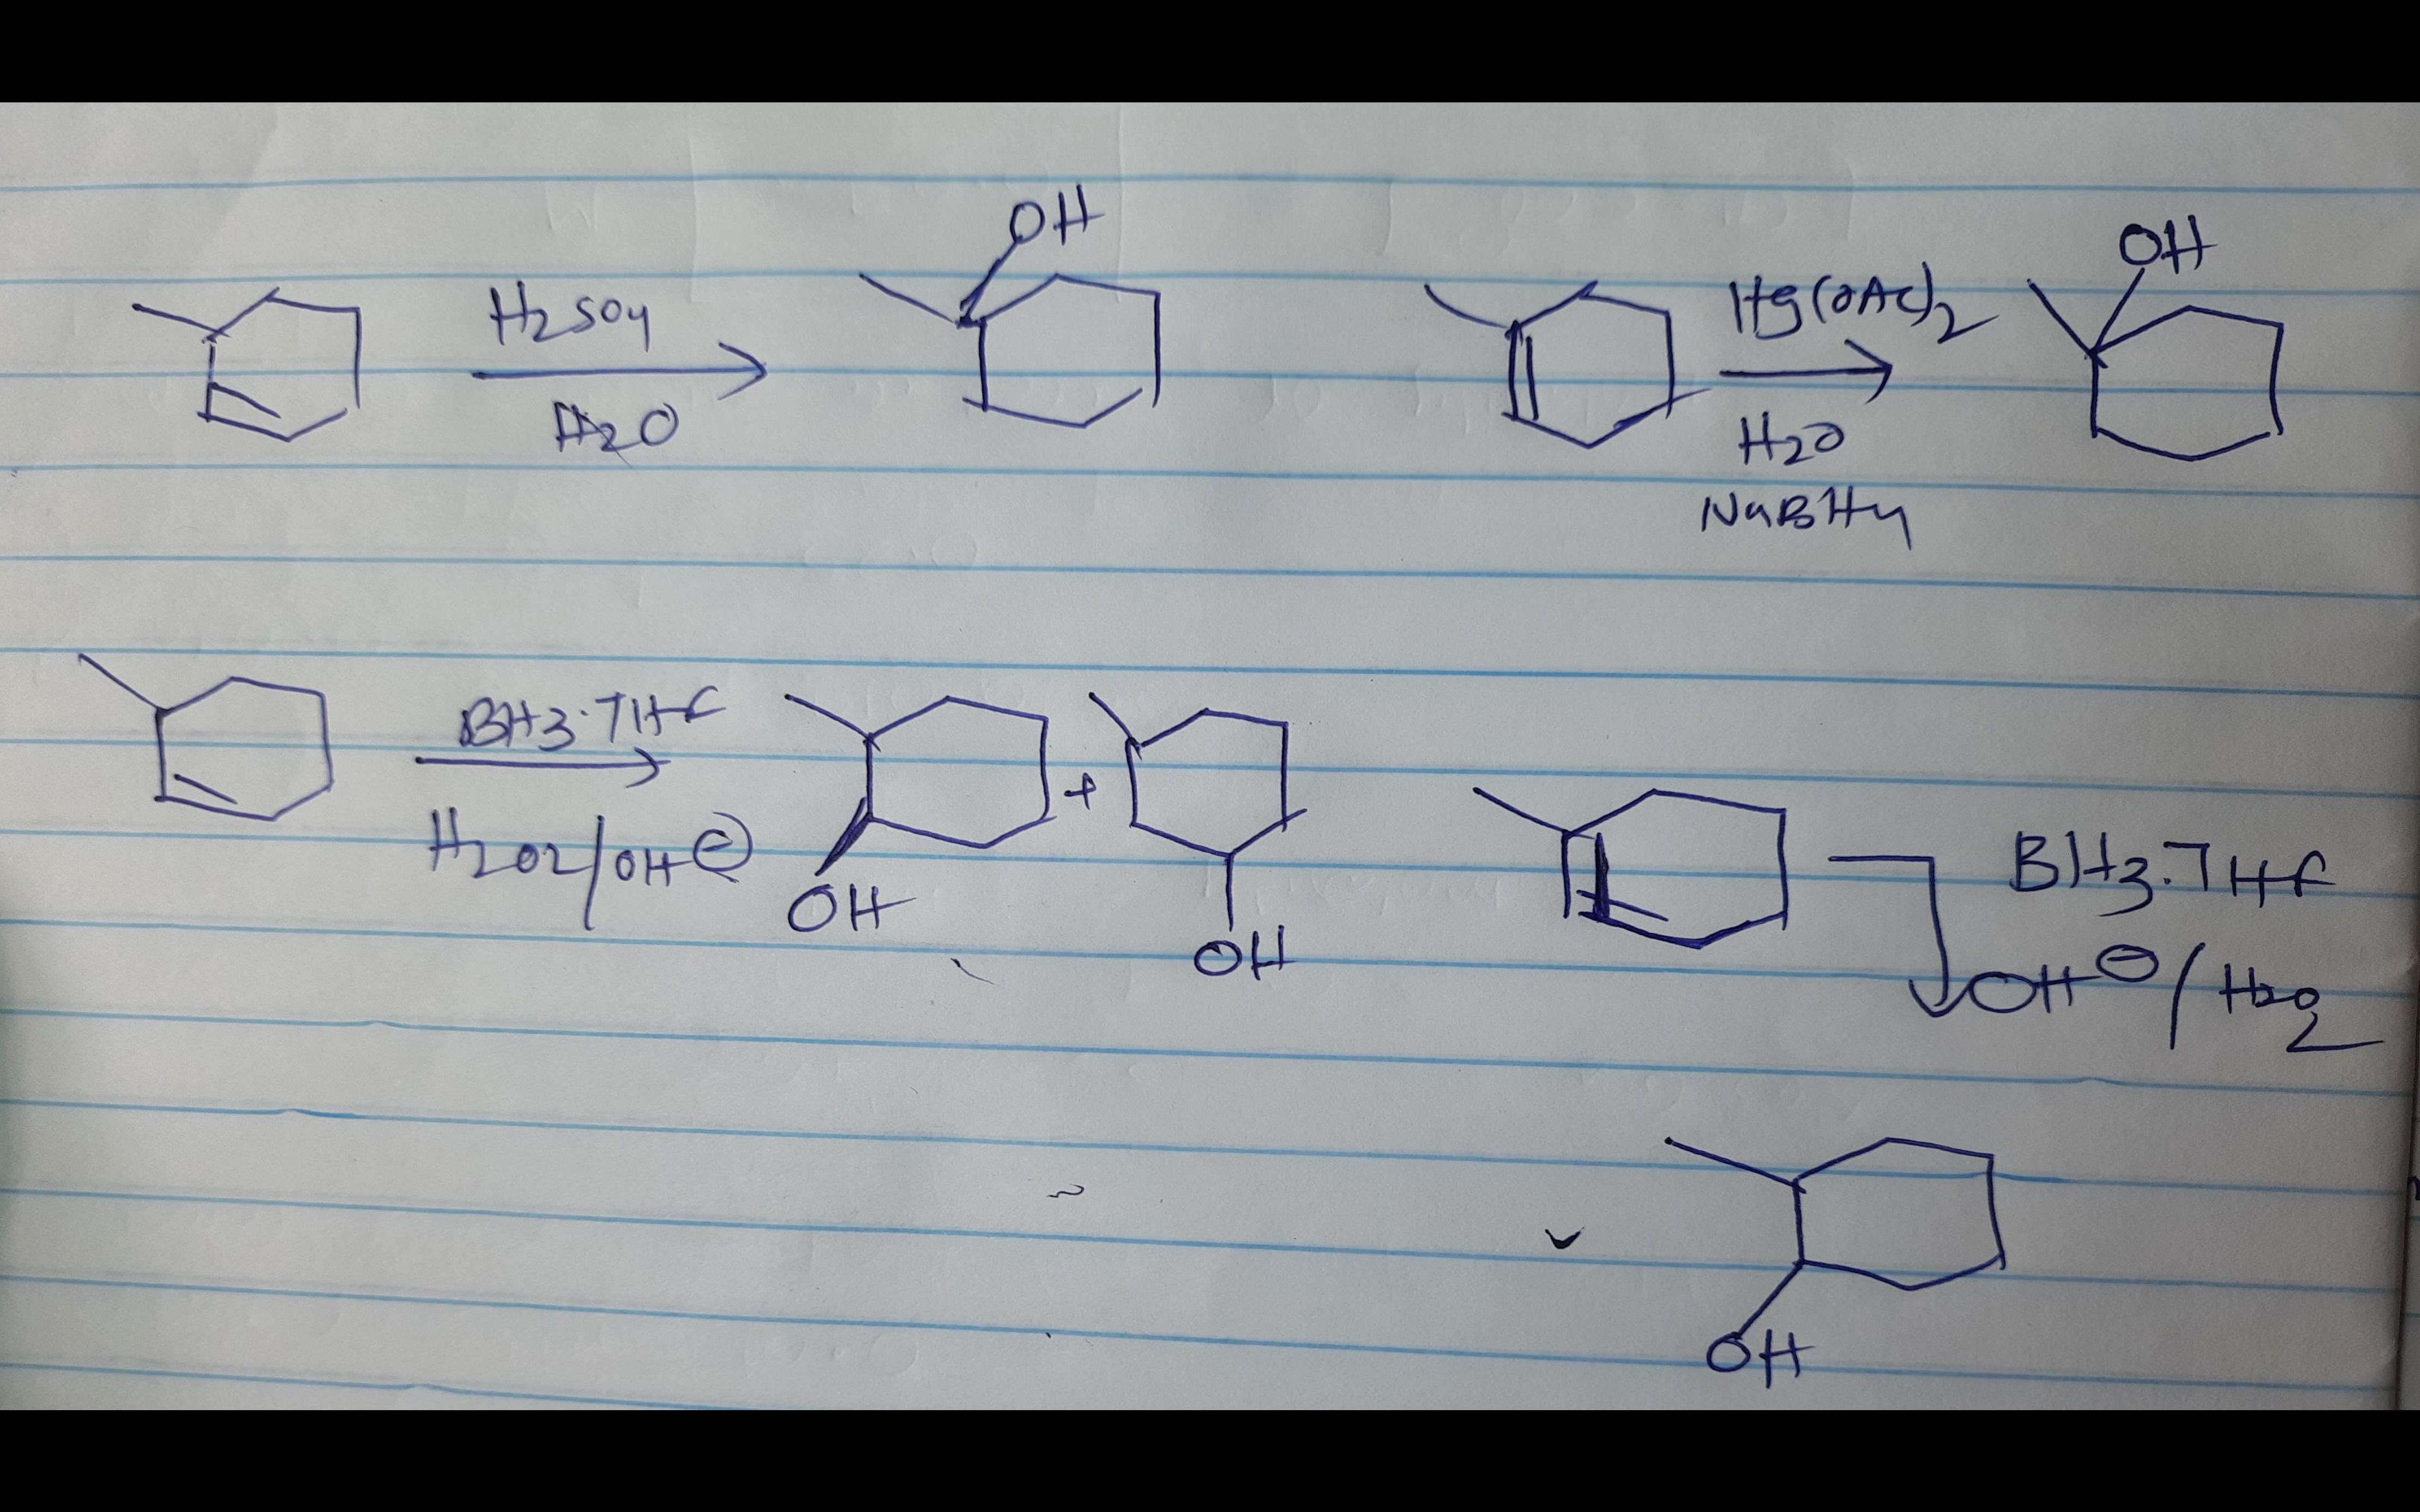 OH
H2SO4
H2O
Hg(OAc)2
H2O
NaBH4
OH
BH3.THF
H2O2/OH⊖
OH
+
OH
BH3.THF
OH⊖/H2O2
OH